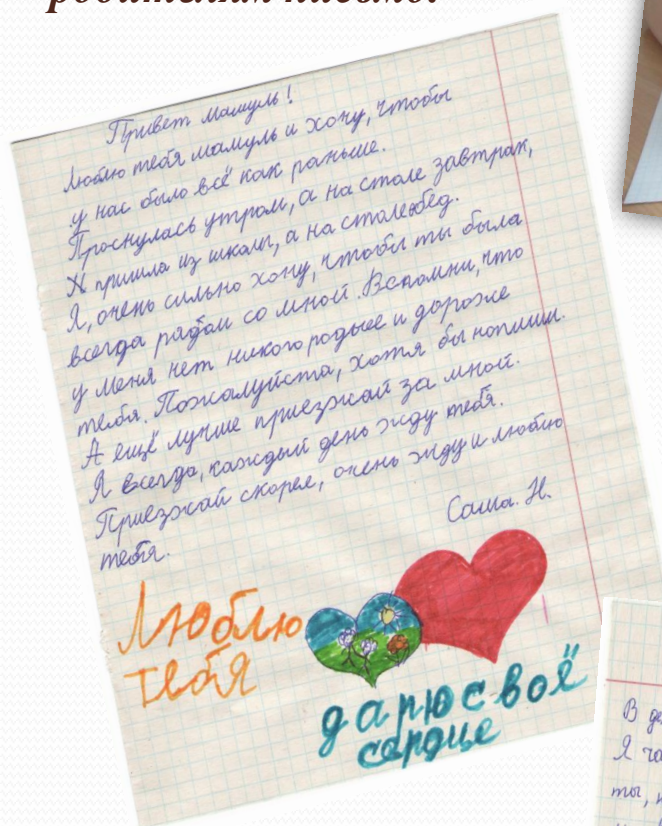 родителям письмо:
Привет мамуль!
Люблю тебя мамуль и хочу, чтобы
у нас было всё как раньше.
Проснулась утром, а на столе завтрак,
Я пришла из школы, а на столе обед.
Я, очень сильно хочу, чтобы ты была
всегда рядом со мной. Вспомни, что
у меня нет никого роднее и дороже
тебя. Пожалуйста, хотя бы напиши.
А ещё лучше приезжай за мной.
Я всегда, каждый день жду тебя.
Приезжай скорее, очень жду и люблю
тебя.
Саша. Н.
Люблю
тебя
дарю своё
сердце
В де
Я ча
ты, н